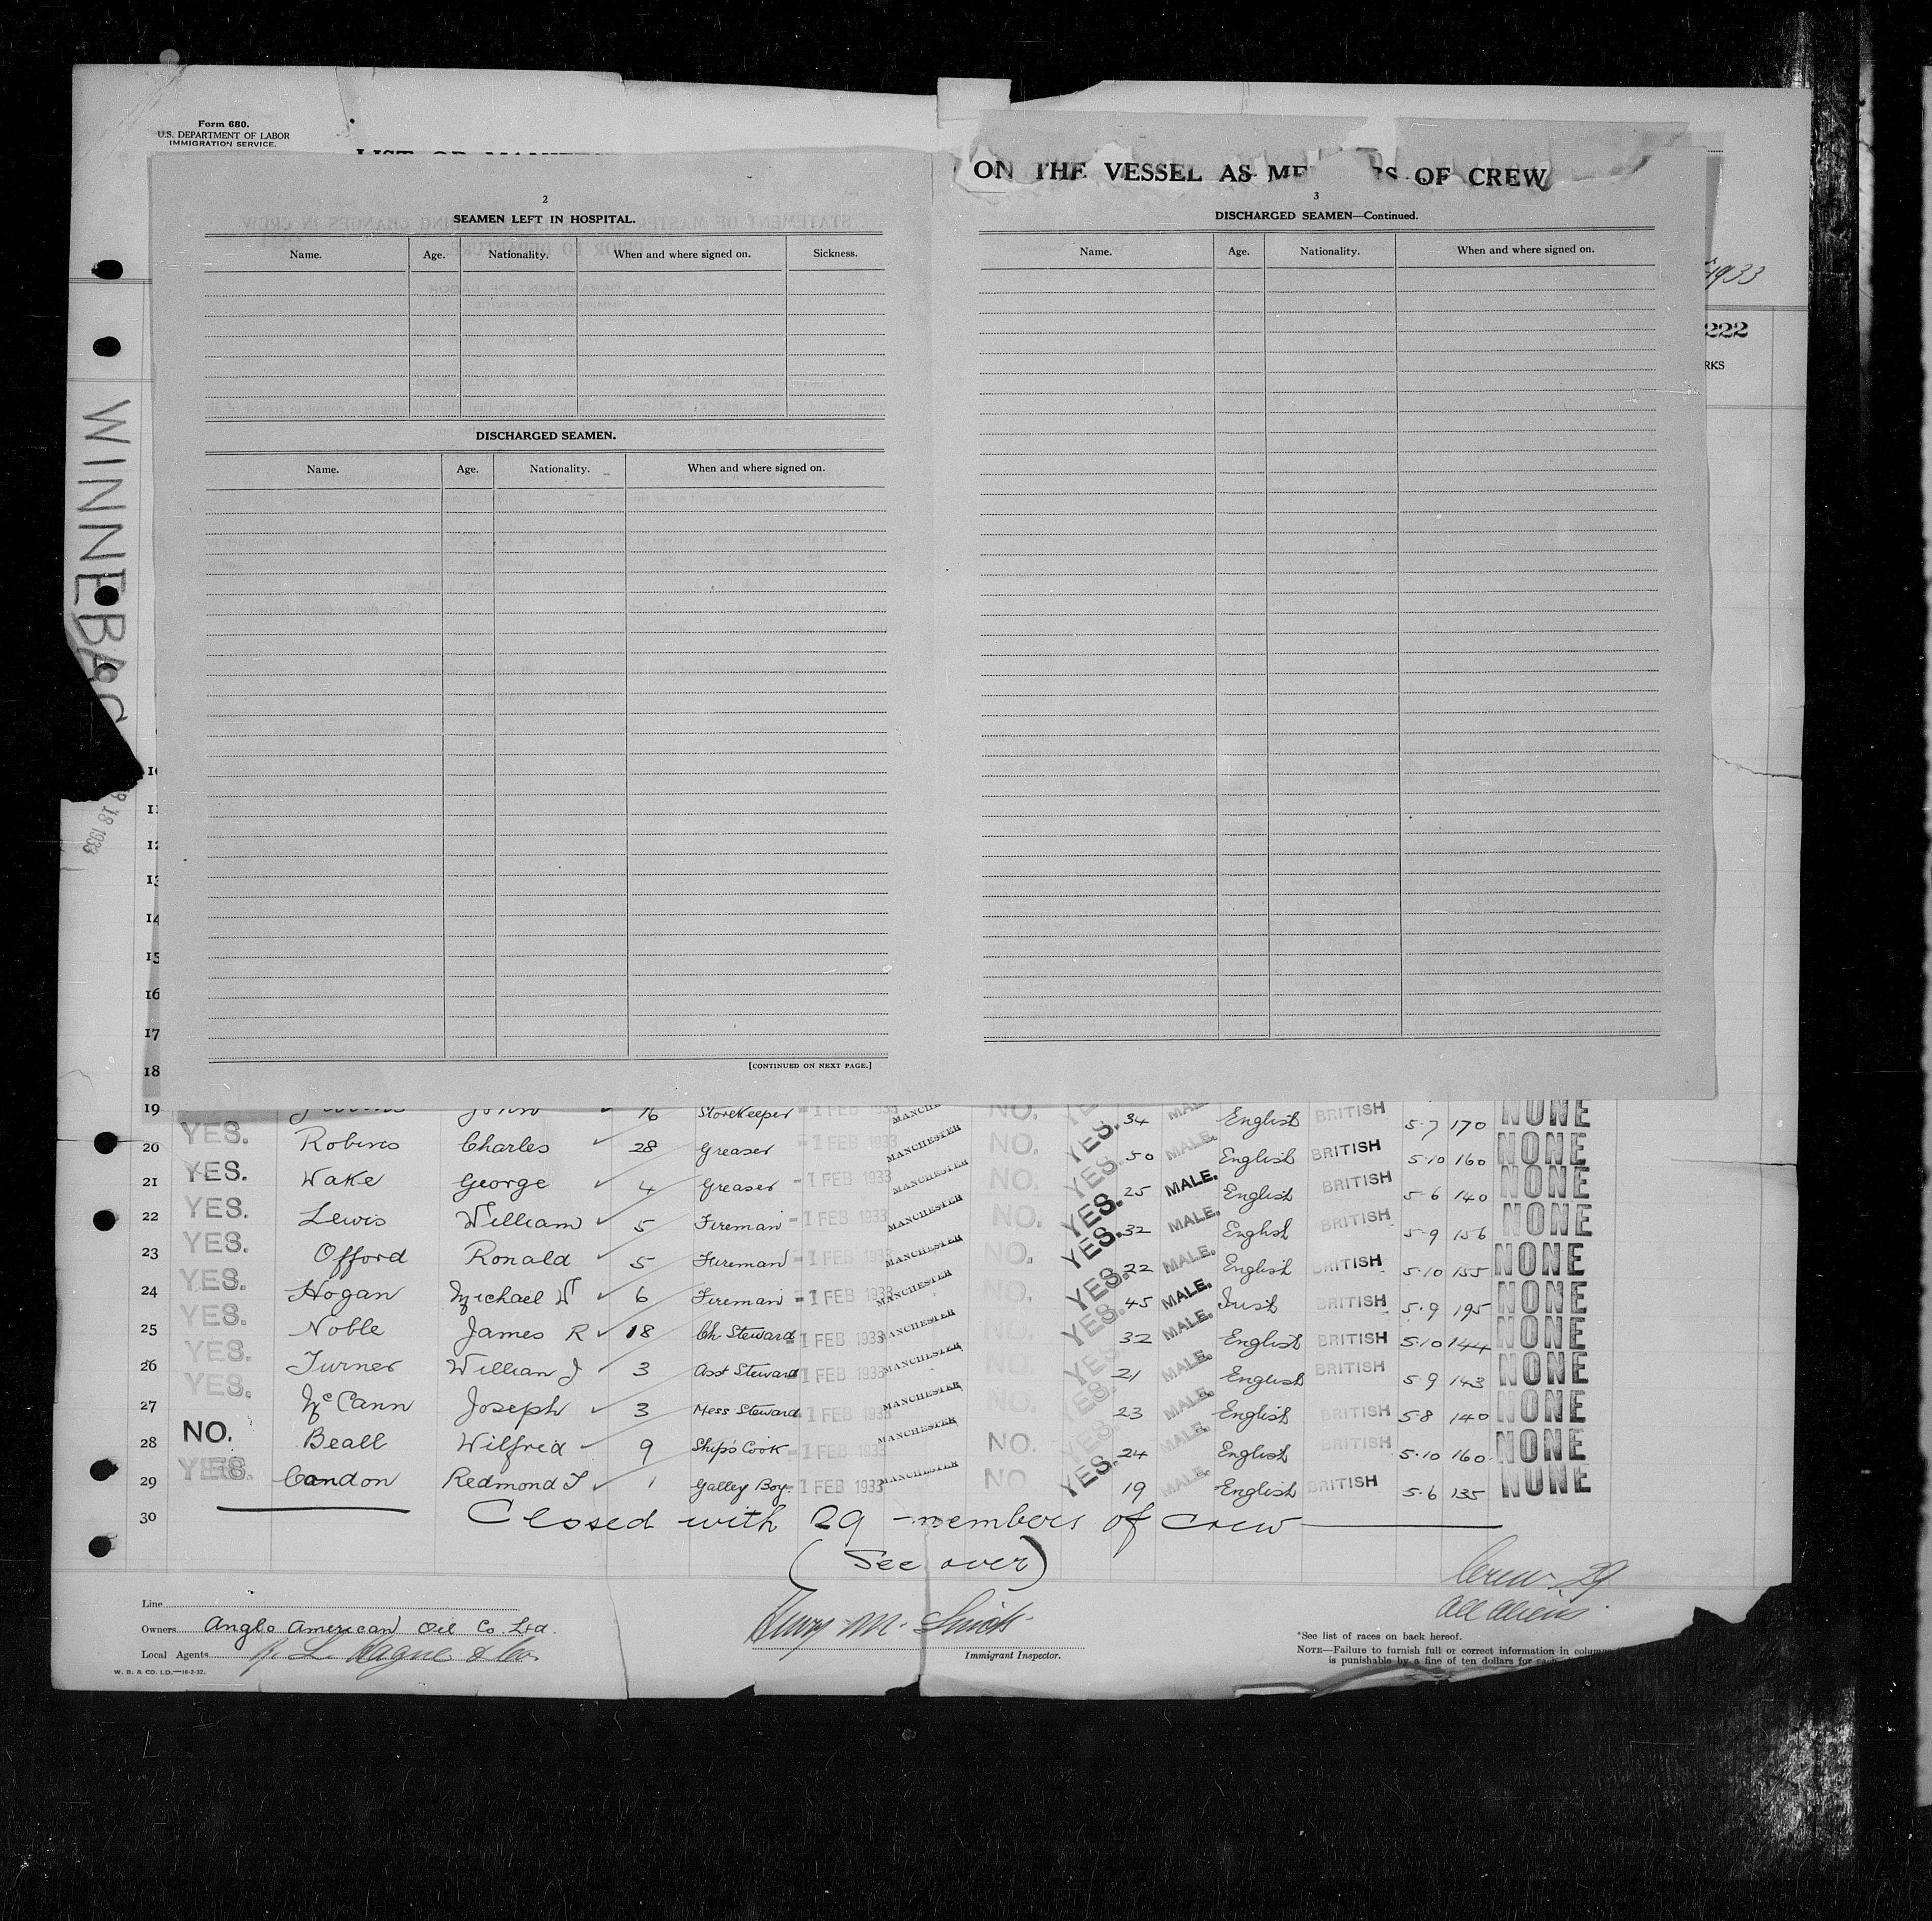 Form 680.
U.S. DEPARTMENT OF LABOR
IMMIGRATION SERVICE.
ON THE VESSEL AS ME RS OF CREW
1933
222
RKS
WINNEBAG
18 1933
2
SEAMEN LEFT IN HOSPITAL.
Name. Age. Nationality. When and where signed on. Sickness.
DISCHARGED SEAMEN.
Name. Age. Nationality. When and where signed on.
[CONTINUED ON NEXT PAGE.]
3
DISCHARGED SEAMEN—Continued.
Name. Age. Nationality. When and where signed on.
10
11
12
13
14
15
16
17
18
19 John 16 Storekeeper -1 FEB 1933 MANCHE NO. 34 MAL English BRITISH 5-7 170 NONE
20 YES. Robins Charles 28 Greaser -1 FEB 1933 MANCHESTER NO. YES. 50 MALE. English BRITISH 5-10 160 NONE
21 YES. Wake George 4 Greaser -1 FEB 1933 MANCHESTER NO. YES. 25 MALE. English BRITISH 5-6 140 NONE
22 YES. Lewis William 5 Fireman -1 FEB 1933 MANCHESTER NO. YES. 32 MALE. English BRITISH 5-9 156 NONE
23 YES. Offord Ronald 5 Fireman -1 FEB 1933 MANCHESTER NO. YES. 22 MALE. English BRITISH 5-10 155 NONE
24 YES. Hogan Michael W 6 Fireman -1 FEB 1933 MANCHESTER NO. YES. 45 MALE. Irish BRITISH 5-9 195 NONE
25 YES. Noble James R 18 Ch. Steward -1 FEB 1933 MANCHESTER NO. YES. 32 MALE. English BRITISH 5-10 144 NONE
26 YES. Turner William J 3 Asst Steward -1 FEB 1933 MANCHESTER NO. YES. 21 MALE. English BRITISH 5 9 143 NONE
27 YES. McCann Joseph 3 Mess Steward -1 FEB 1933 MANCHESTER NO. YES. 23 MALE. English BRITISH 5-8 140 NONE
28 NO. Beall Wilfred 9 Ship's Cook -1 FEB 1933 MANCHESTER NO. YES. 24 MALE. English BRITISH 5-10 160 NONE
29 YES. Condon Redmond J 1 Galley Boy. -1 FEB 1933 MANCHESTER NO YES. 19 MALE. English BRITISH 5-6 135 NONE
30 Closed with 29 members of crew
(See over)
Crew 29
all aliens.
Line
Owners Anglo American Oil Co. Ltd.
Local Agents & Co.
W. B. & CO. LD.—16-2-32.
Henry M.
Immigrant Inspector.
*See list of races on back hereof.
NOTE—Failure to furnish full or correct information in colum
is punishable by a fine of ten dollars for